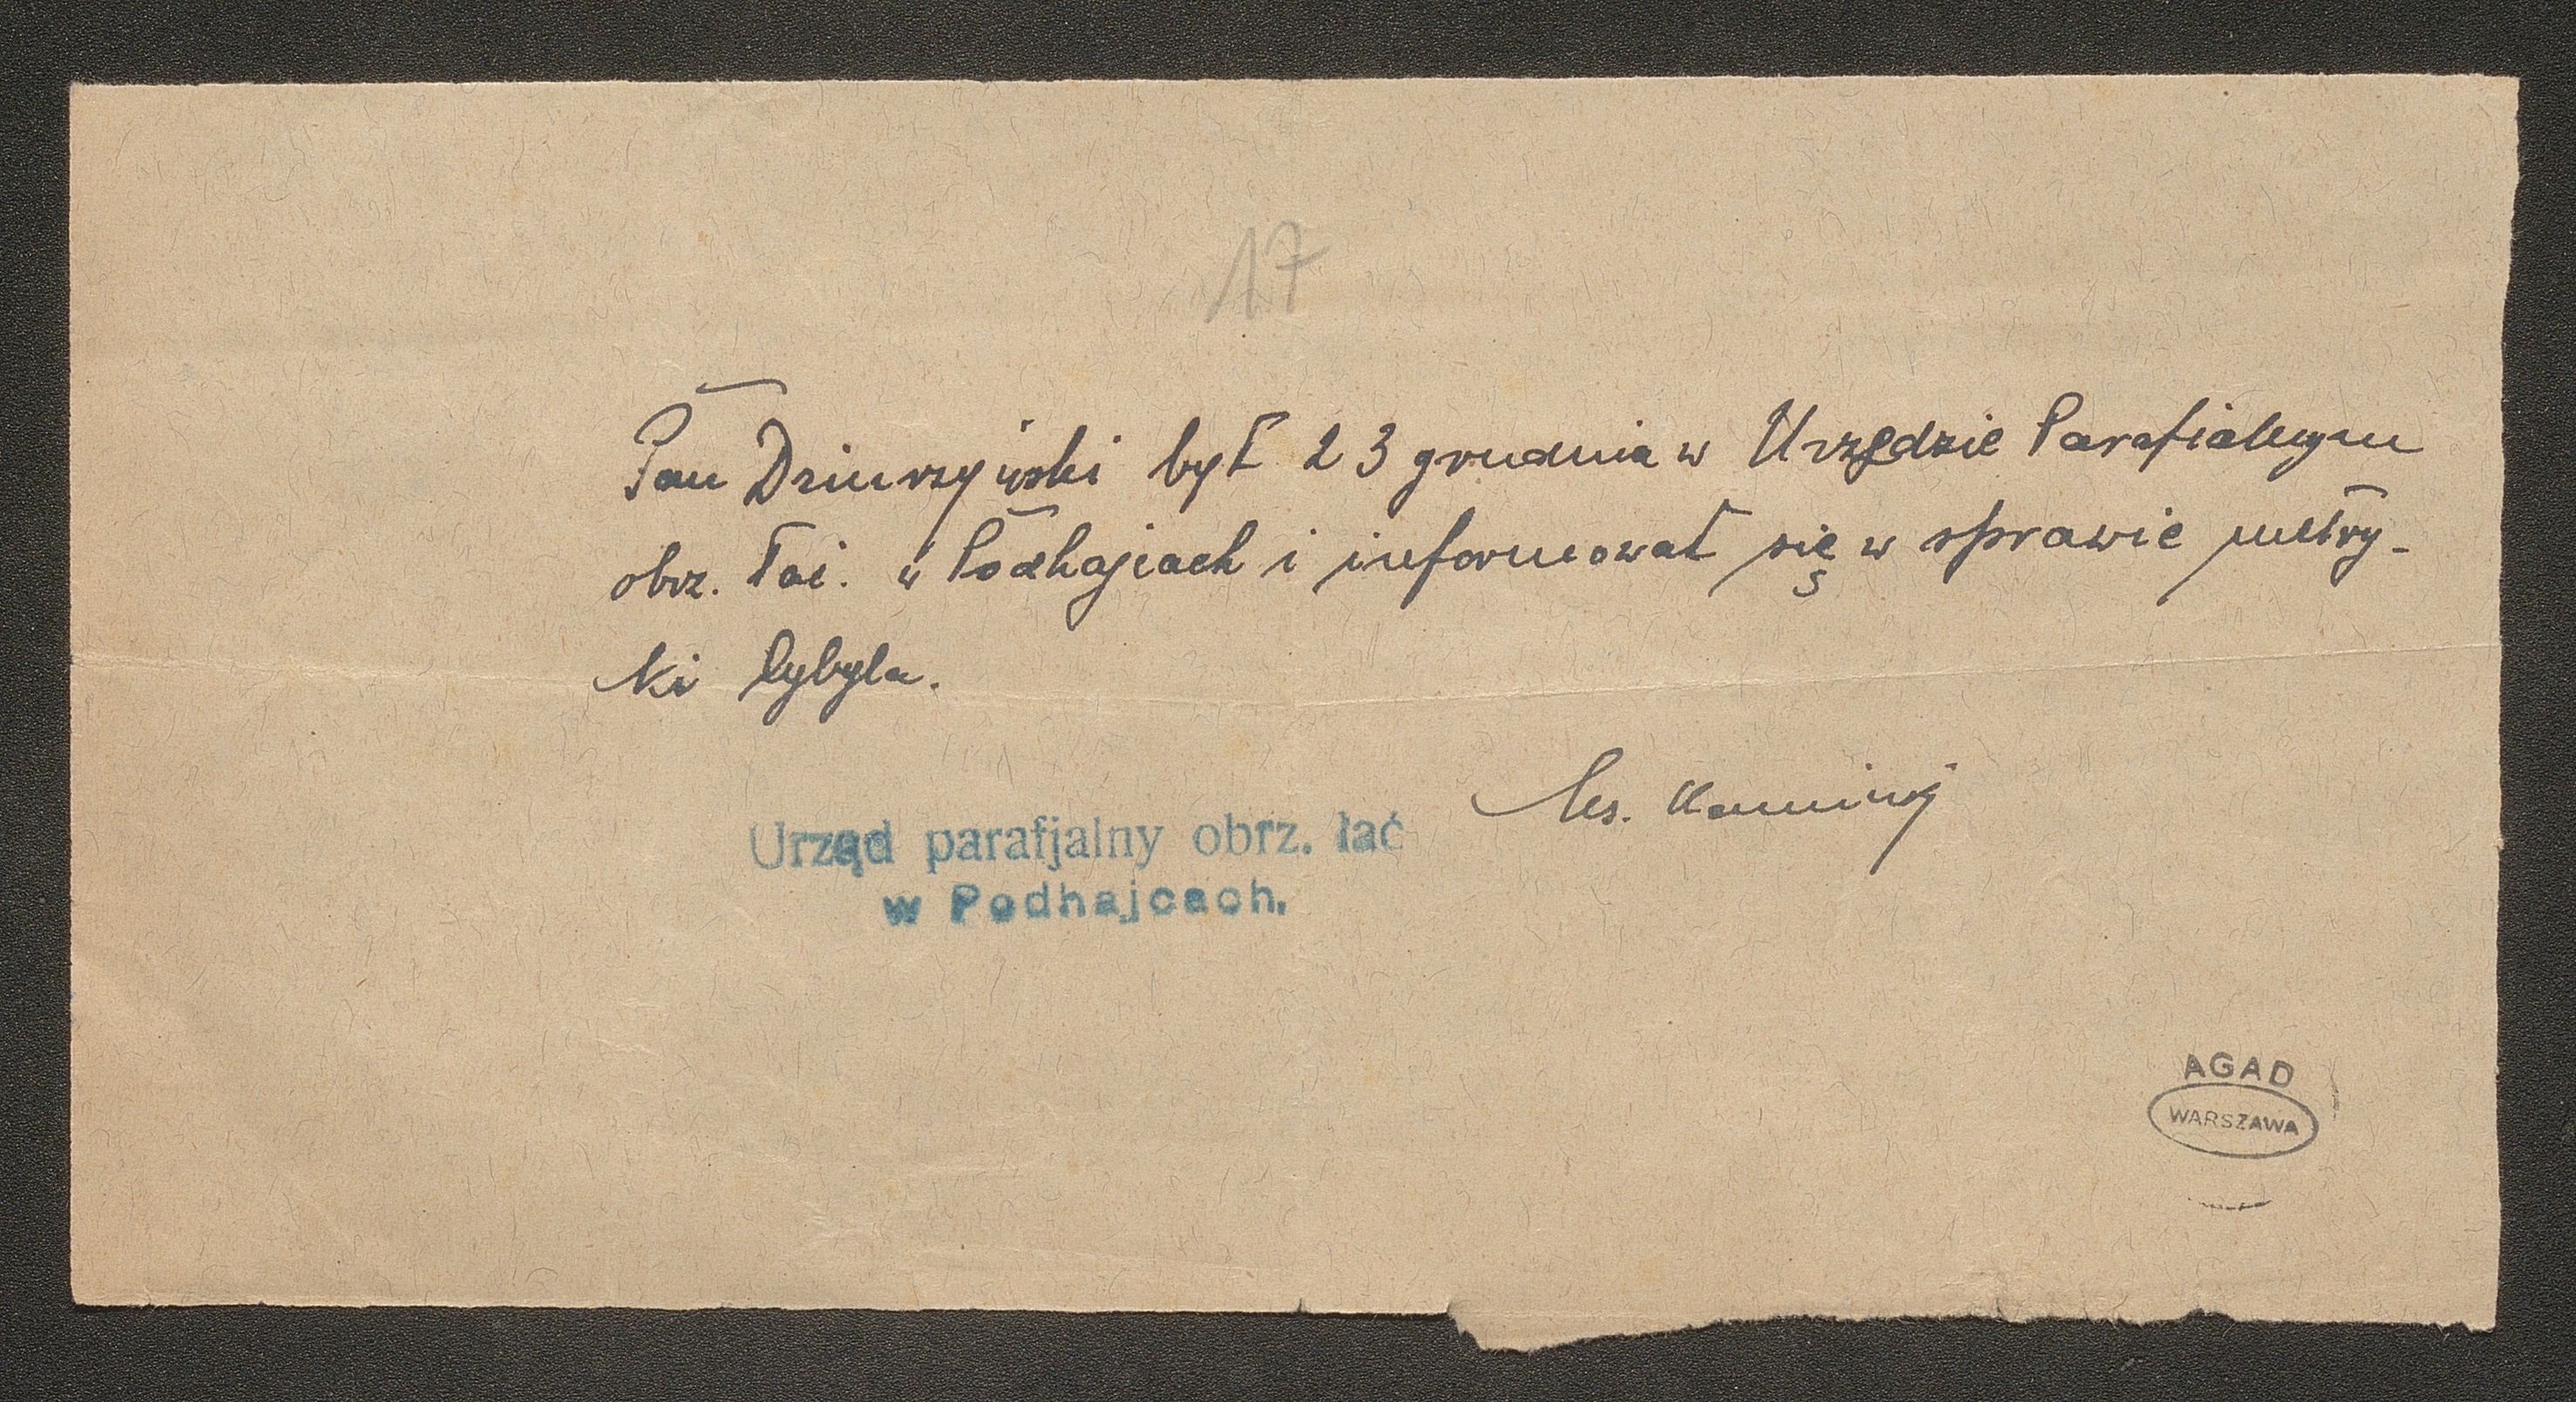 17
Pan Dziurzyński był 23 grudnia w Urzędzie Parafialnym
obrz. łać. w Podhajcach i informował się w sprawie metry-
ki Cybyla.
Ks.
Urząd parafjalny obrz. łać
w Podhajcach.
AGAD
WARSZAWA